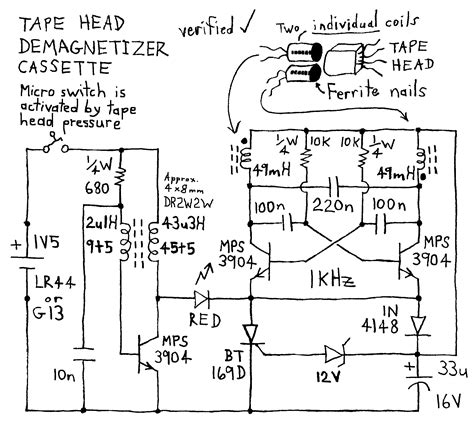 TAPE HEAD
DEMAGNETIZER
CASSETTE
Micro switch is
activated by tape
head pressure
verified ✓
Two individual coils
TAPE
HEAD
Ferrite nails
1/4W
680
Approx.
4x8mm
DR2W2W
2u1H
9t5
43u3H
45t5
+
1V5
LR44
or
G13
10n
MPS
3904
RED
49mH
1/4W
10K
10K
1/4W
49mH
100n
220n
100n
MPS
3904
MPS
3904
1KHz
1N
4148
BT
169D
12V
+
33u
16V